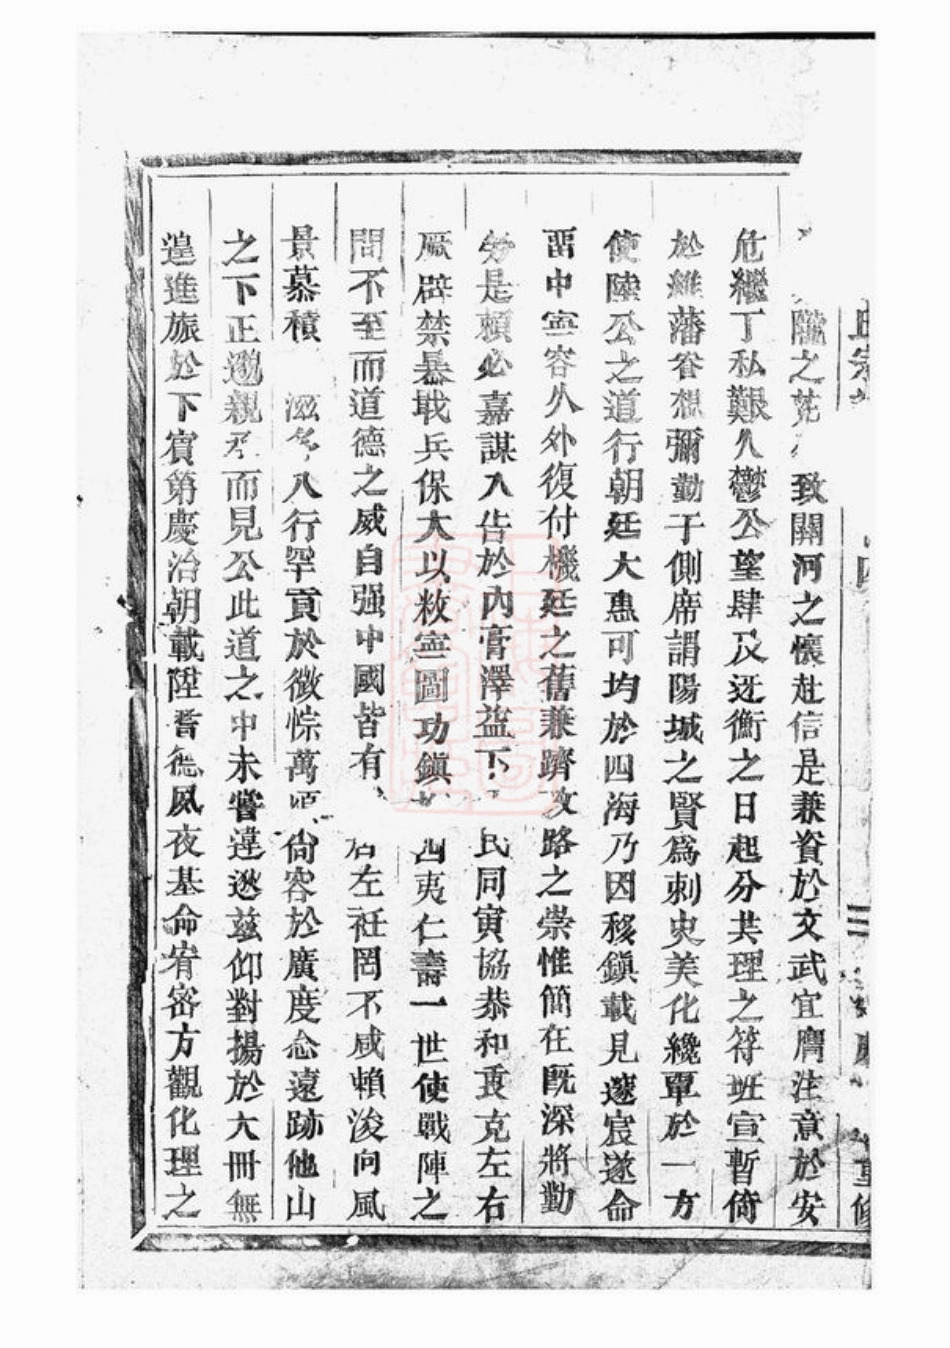 隴之茺 致關河之懷赴信是兼資於文武宜膺注意於安
危繼丁私艱人鬱公望肆及迓衡之日起分共理之符班宣暫倚
於維藩眷想彌勤于側席謂陽城之賢爲刺史美化纔覃於一方
使陸公之道行朝廷大惠可均於四海乃因移鎮載見邃宸遂命
畱中寧容久外復付機廷之舊兼躋政路之崇惟簡在既深將勤
勞是賴必嘉謀入告於內膏澤益下 民同寅協恭和衷克左右
厥辟禁暴戢兵保大以敉寧圖功鎮 四夷仁壽一世使戰陣之
問不至而道德之威自强中國皆有 右左衽罔不咸賴浚向風
景慕積 滋多 入行罕貢於微悰萬 尚容於廣度念遠跡他山
之下正邈親 而見公此道之中未嘗違逖茲仰對揚於大冊無
遑進旅於下賓第慶治朝載陞耆德夙夜基命宥密方觀化理之
四
重修